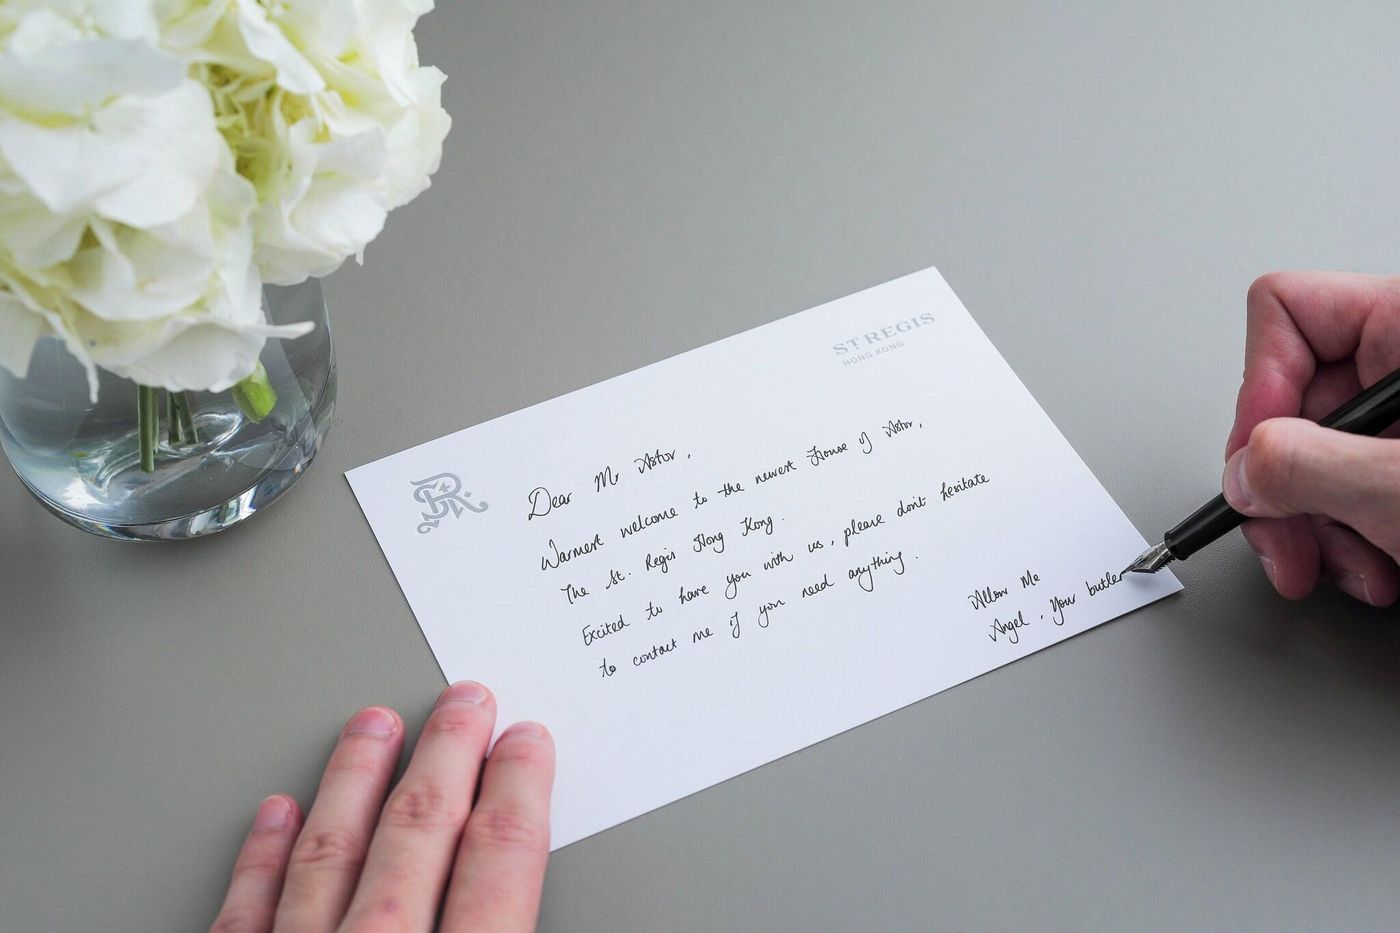 ST. REGIS
HONG KONG
SR
Dear Mr Astor,
Warmest welcome to the newest House of Astor,
The St. Regis Hong Kong.
Excited to have you with us, please don't hesitate
to contact me if you need anything.
Allow Me
Angel, Your butler